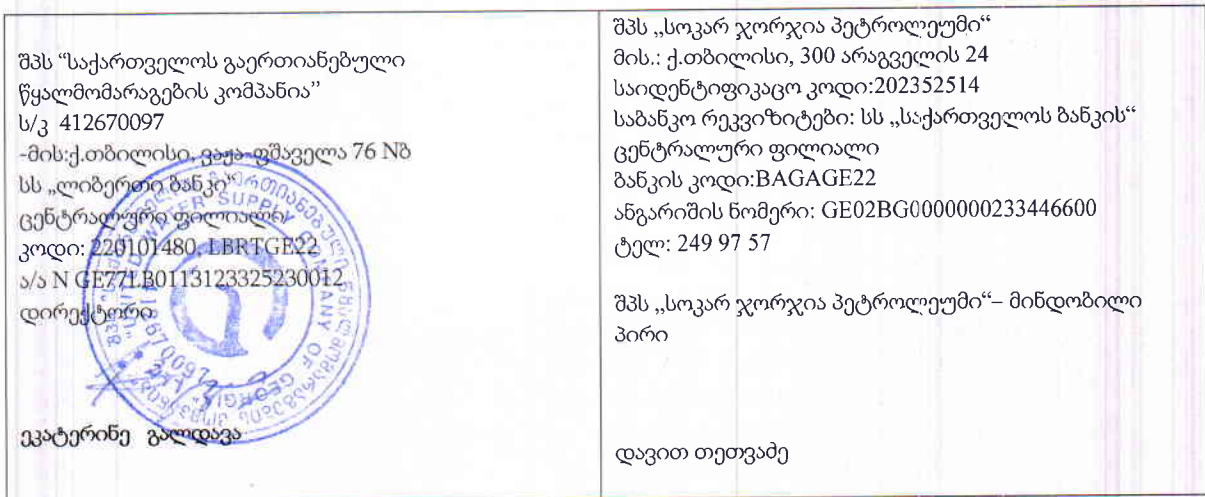 შპს “საქართველოს გაერთიანებული
წყალმომარაგების კომპანია”
ს/კ 412670097
-მის:ქ.თბილისი, ვაჟა-ფშაველა 76 Nბ
სს „ლიბერთი ბანკი“
ცენტრალური ფილიალი
კოდი: 220101480, LBRTGE22
ა/ა N GE77LB0113123325230012
დირექტორი
UNITED WATER SUPPLY COMPANY OF GEORGIA
ეკატერინე გალდავა
შპს „სოკარ ჯორჯია პეტროლეუმი“
მის.: ქ.თბილისი, 300 არაგველის 24
საიდენტიფიკაცო კოდი:202352514
საბანკო რეკვიზიტები: სს „საქართველოს ბანკის“
ცენტრალური ფილიალი
ბანკის კოდი:BAGAGE22
ანგარიშის ნომერი: GE02BG0000000233446600
ტელ: 249 97 57
შპს „სოკარ ჯორჯია პეტროლეუმი“– მინდობილი
პირი
დავით თეთვაძე